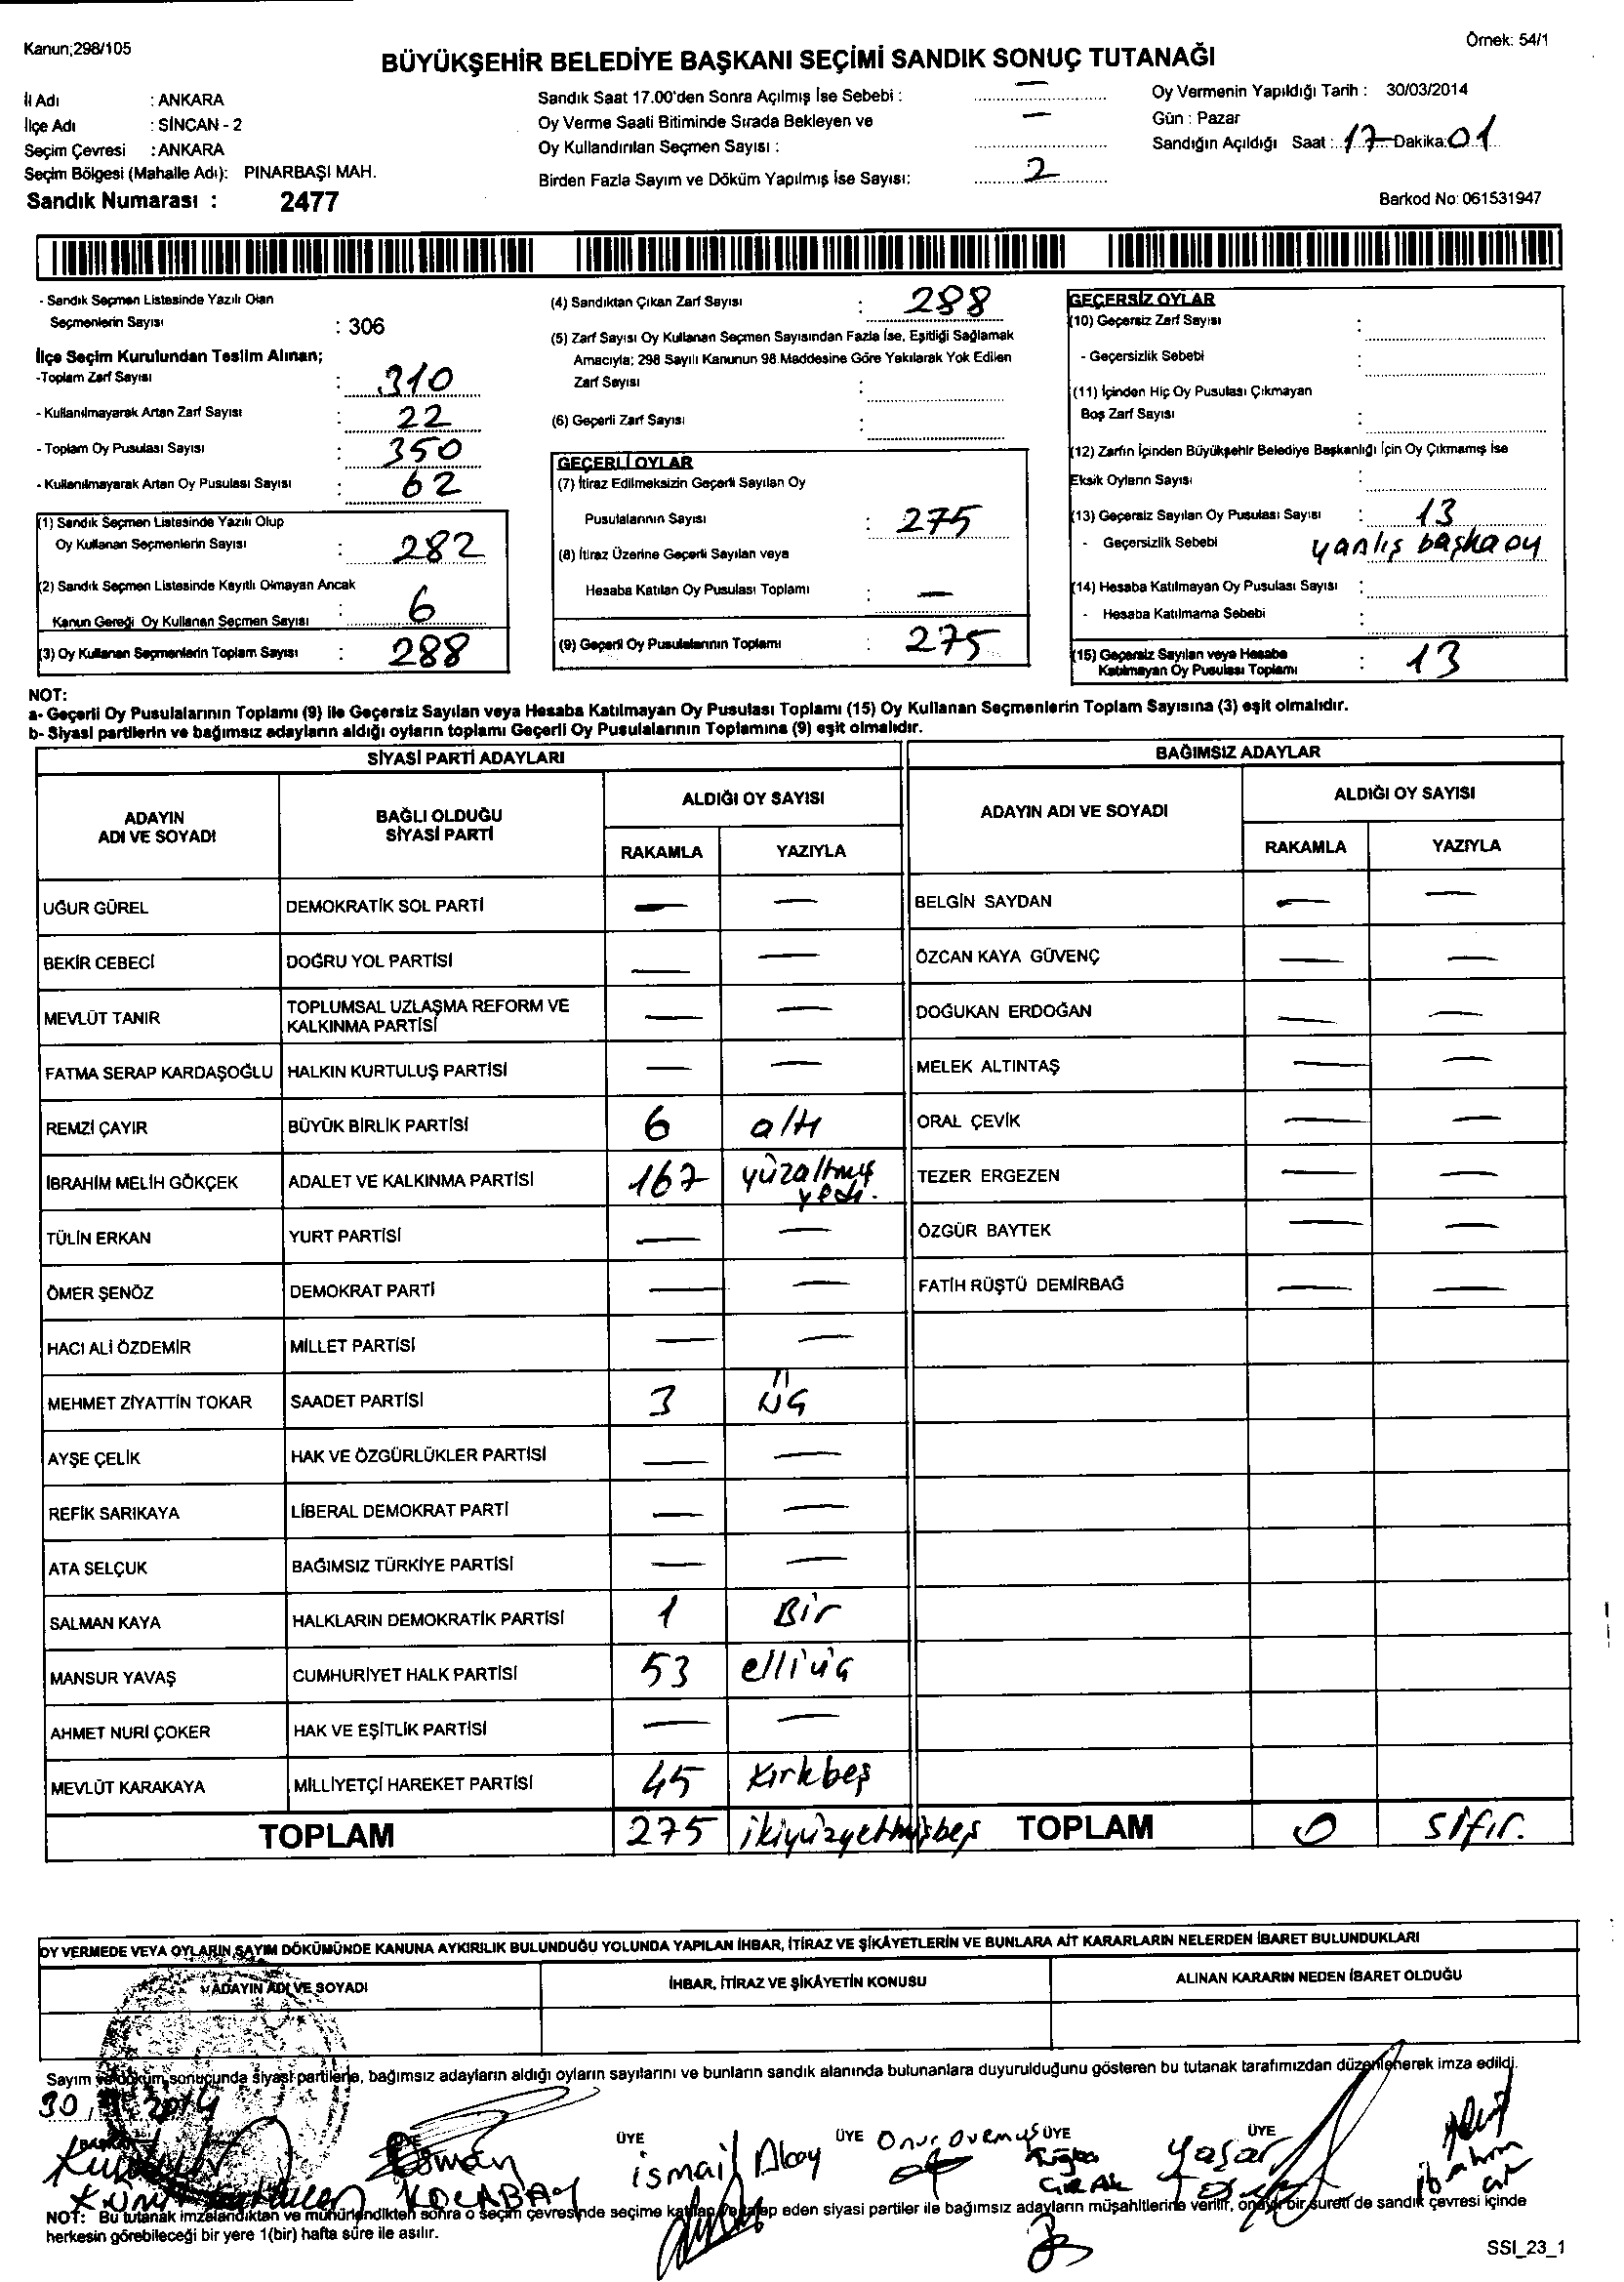 Kanun;298/105
Örnek: 54/1
BÜYÜKŞEHİR BELEDİYE BAŞKANI SEÇİMİ SANDIK SONUÇ TUTANAĞI
İl Adı : ANKARA
İlçe Adı : SİNCAN - 2
Seçim Çevresi : ANKARA
Seçim Bölgesi (Mahalle Adı): PINARBAŞI MAH.
Sandık Numarası : 2477
Sandık Saat 17.00'den Sonra Açılmış İse Sebebi : —
Oy Verme Saati Bitiminde Sırada Bekleyen ve —
Oy Kullandırılan Seçmen Sayısı :
Birden Fazla Sayım ve Döküm Yapılmış İse Sayısı: 2
Oy Vermenin Yapıldığı Tarih : 30/03/2014
Gün : Pazar
Sandığın Açıldığı Saat : 17 Dakika: 01
Barkod No: 061531947
- Sandık Seçmen Listesinde Yazılı Olan
Seçmenlerin Sayısı : 306
İlçe Seçim Kurulundan Teslim Alınan;
-Toplam Zarf Sayısı : 310
- Kullanılmayarak Artan Zarf Sayısı : 22
- Toplam Oy Pusulası Sayısı : 350
- Kullanılmayarak Artan Oy Pusulası Sayısı : 62
(1) Sandık Seçmen Listesinde Yazılı Olup
Oy Kullanan Seçmenlerin Sayısı : 282
(2) Sandık Seçmen Listesinde Kayıtlı Olmayan Ancak
Kanun Gereği Oy Kullanan Seçmen Sayısı : 6
(3) Oy Kullanan Seçmenlerin Toplam Sayısı : 288
(4) Sandıktan Çıkan Zarf Sayısı : 288
(5) Zarf Sayısı Oy Kullanan Seçmen Sayısından Fazla İse, Eşitliği Sağlamak
Amacıyla; 298 Sayılı Kanunun 98.Maddesine Göre Yakılarak Yok Edilen
Zarf Sayısı :
(6) Geçerli Zarf Sayısı :
GEÇERLİ OYLAR
(7) İtiraz Edilmeksizin Geçerli Sayılan Oy
Pusulalarının Sayısı : 275
(8) İtiraz Üzerine Geçerli Sayılan veya
Hesaba Katılan Oy Pusulası Toplamı : —
(9) Geçerli Oy Pusulalarının Toplamı : 275
GEÇERSİZ OYLAR
(10) Geçersiz Zarf Sayısı :
- Geçersizlik Sebebi :
(11) İçinden Hiç Oy Pusulası Çıkmayan
Boş Zarf Sayısı :
(12) Zarfın İçinden Büyükşehir Belediye Başkanlığı İçin Oy Çıkmamış İse
Eksik Oyların Sayısı :
(13) Geçersiz Sayılan Oy Pusulası Sayısı : 13
- Geçersizlik Sebebi yanlış başka oy
(14) Hesaba Katılmayan Oy Pusulası Sayısı :
- Hesaba Katılmama Sebebi :
(15) Geçersiz Sayılan veya Hesaba
Katılmayan Oy Pusulası Toplamı : 13
NOT:
a- Geçerli Oy Pusulalarının Toplamı (9) ile Geçersiz Sayılan veya Hesaba Katılmayan Oy Pusulası Toplamı (15) Oy Kullanan Seçmenlerin Toplam Sayısına (3) eşit olmalıdır.
b- Siyasi partilerin ve bağımsız adayların aldığı oyların toplamı Geçerli Oy Pusulalarının Toplamına (9) eşit olmalıdır.
SİYASİ PARTİ ADAYLARI
ADAYIN ADI VE SOYADI BAĞLI OLDUĞU SİYASİ PARTİ ALDIĞI OY SAYISI
RAKAMLA YAZIYLA
UĞUR GÜREL DEMOKRATİK SOL PARTİ — —
BEKİR CEBECİ DOĞRU YOL PARTİSİ — —
MEVLÜT TANIR TOPLUMSAL UZLAŞMA REFORM VE KALKINMA PARTİSİ — —
FATMA SERAP KARDAŞOĞLU HALKIN KURTULUŞ PARTİSİ — —
REMZİ ÇAYIR BÜYÜK BİRLİK PARTİSİ 6 altı
İBRAHİM MELİH GÖKÇEK ADALET VE KALKINMA PARTİSİ 167 yüzaltmış yedi.
TÜLİN ERKAN YURT PARTİSİ — —
ÖMER ŞENÖZ DEMOKRAT PARTİ — —
HACI ALİ ÖZDEMİR MİLLET PARTİSİ — —
MEHMET ZİYATTİN TOKAR SAADET PARTİSİ 3 üç
AYŞE ÇELİK HAK VE ÖZGÜRLÜKLER PARTİSİ — —
REFİK SARIKAYA LİBERAL DEMOKRAT PARTİ — —
ATA SELÇUK BAĞIMSIZ TÜRKİYE PARTİSİ — —
SALMAN KAYA HALKLARIN DEMOKRATİK PARTİSİ 1 Bir
MANSUR YAVAŞ CUMHURİYET HALK PARTİSİ 53 elliüç
AHMET NURİ ÇOKER HAK VE EŞİTLİK PARTİSİ — —
MEVLÜT KARAKAYA MİLLİYETÇİ HAREKET PARTİSİ 45 kırkbeş
TOPLAM 275 ikiyüzyetmişbeş
BAĞIMSIZ ADAYLAR
ADAYIN ADI VE SOYADI ALDIĞI OY SAYISI
RAKAMLA YAZIYLA
BELGİN SAYDAN — —
ÖZCAN KAYA GÜVENÇ — —
DOĞUKAN ERDOĞAN — —
MELEK ALTINTAŞ — —
ORAL ÇEVİK — —
TEZER ERGEZEN — —
ÖZGÜR BAYTEK — —
FATİH RÜŞTÜ DEMİRBAĞ — —
TOPLAM 0 sıfır.
OY VERMEDE VEYA OYLARIN SAYIM DÖKÜMÜNDE KANUNA AYKIRILIK BULUNDUĞU YOLUNDA YAPILAN İHBAR, İTİRAZ VE ŞİKÂYETLERİN VE BUNLARA AİT KARARLARIN NELERDEN İBARET BULUNDUKLARI
ADAYIN ADI VE SOYADI İHBAR, İTİRAZ VE ŞİKÂYETİN KONUSU ALINAN KARARIN NEDEN İBARET OLDUĞU
Sayım ve döküm sonucunda siyasi partilerle, bağımsız adayların aldığı oyların sayılarını ve bunların sandık alanında bulunanlara duyurulduğunu gösteren bu tutanak tarafımızdan düzenlenerek imza edildi.
30 2014
ÜYE ÜYE ÜYE ÜYE
Osman KOCABAY
ismail Alcay
Yaşar
NOT: Bu tutanak imzalandıktan ve mühürlendikten sonra o seçim çevresinde seçime katılan ve talep eden siyasi partiler ile bağımsız adayların müşahitlerine verilir, onaylı bir sureti de sandık çevresi içinde
herkesin görebileceği bir yere 1(bir) hafta süre ile asılır.
SSI_23_1